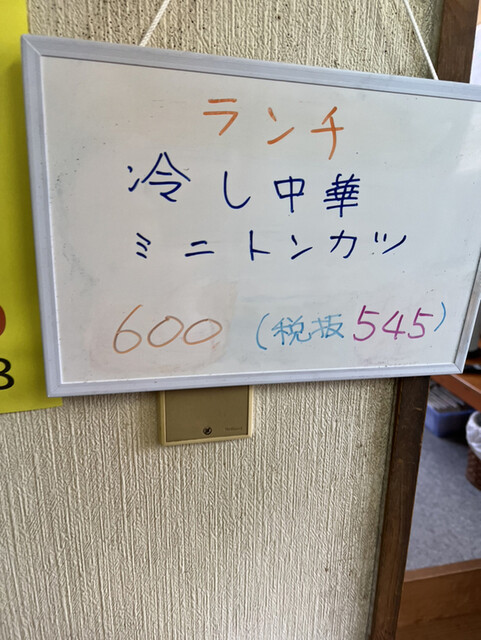 ランチ
冷し中華
ミニトンカツ
600 (税抜545)